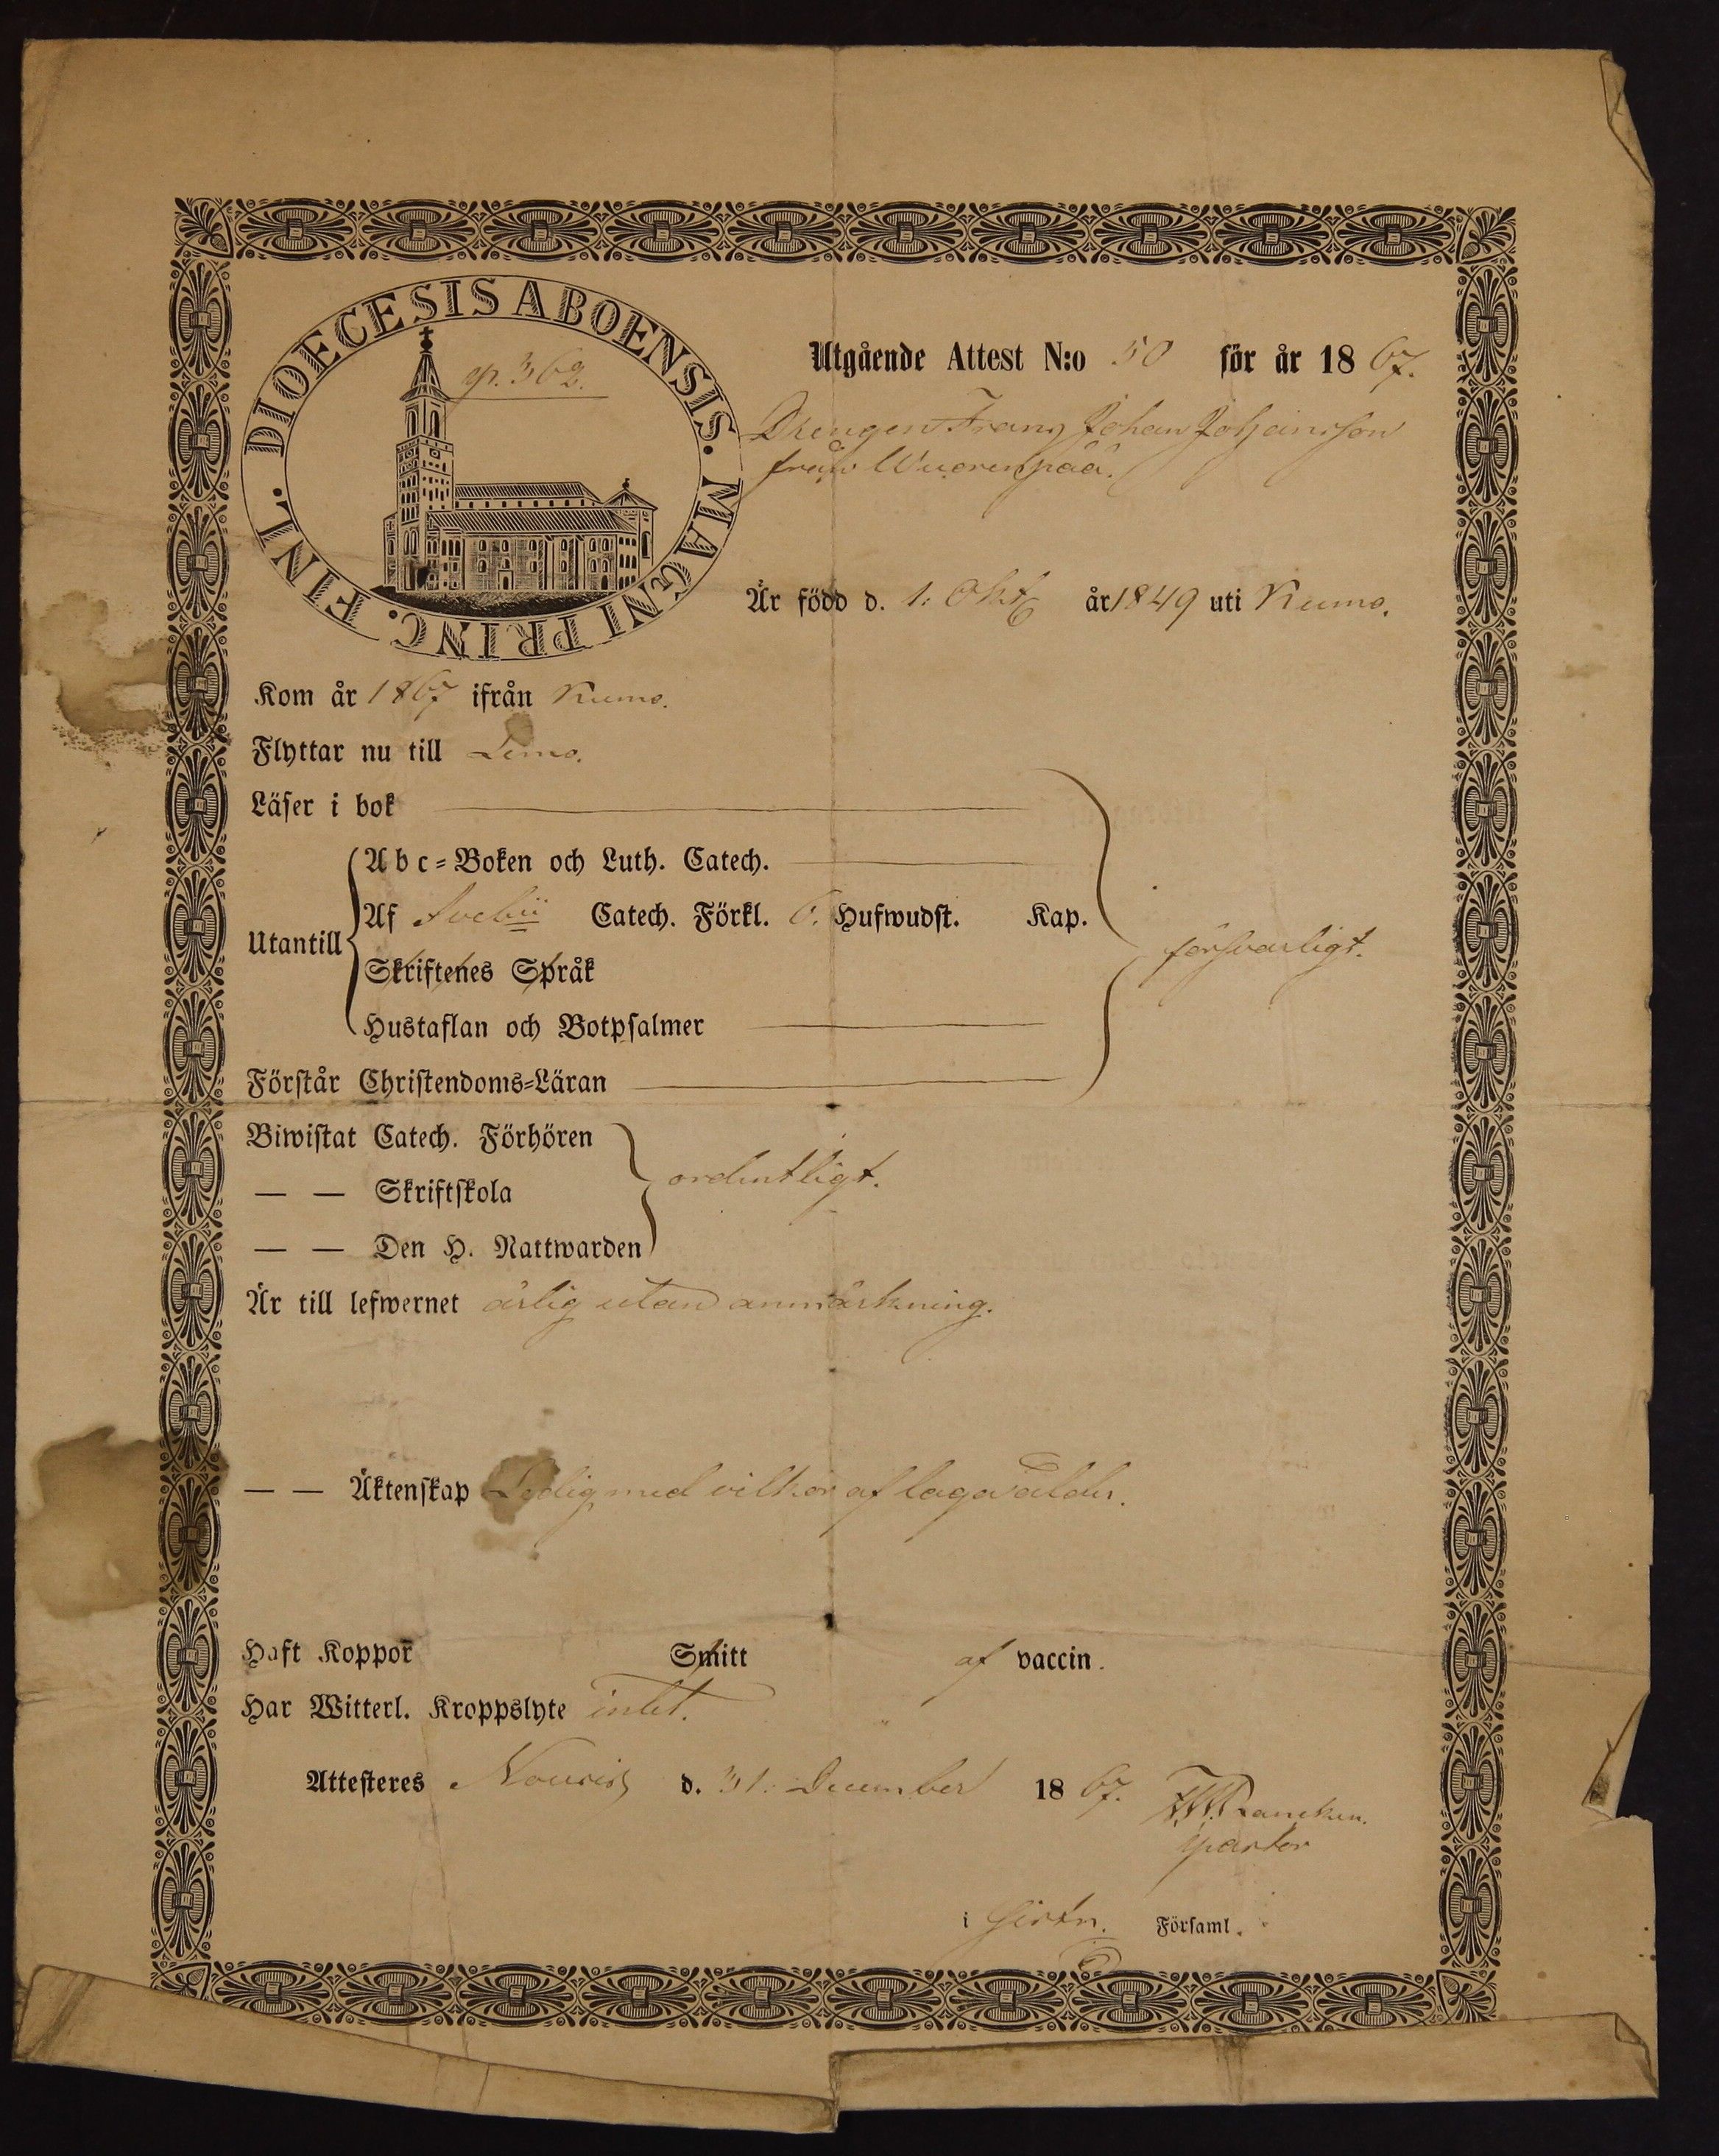 DIOECESIS ABOENSIS. MAGNI PRINC. FINL.
p. 362.
Utgående Attest N:o 50 för år 1867.
Drengen Frans Johan Johansson
från Wuorenpää.
Är född d. 1. Okt år 1849 uti Kumo.
Kom år 1867 ifrån Kumo.
Flyttar nu till Lemo.
Läser i bok
Abc=Boken och Luth. Catech.
Af Svebii Catech. Förkl. 6. Hufwudst. Kap.
Utantill
försvarligt.
Skriftenes Språk
Hustaflan och Botpsalmer
Förstår Christendoms=Läran
Biwistat Catech. Förhören
ordentligt.
— — Skriftskola
— — Den H. Nattwarden
Är till lefwernet ärlig utan anmärkning.
— — Äktenskap Ledig med vilkor af laga ålder.
Haft Koppor Smitt af vaccin.
Har Witterl. Kroppslyte intet.
Attesteres Nousis d. 31. December 1867.
Rancken.
pastor
i Församl.